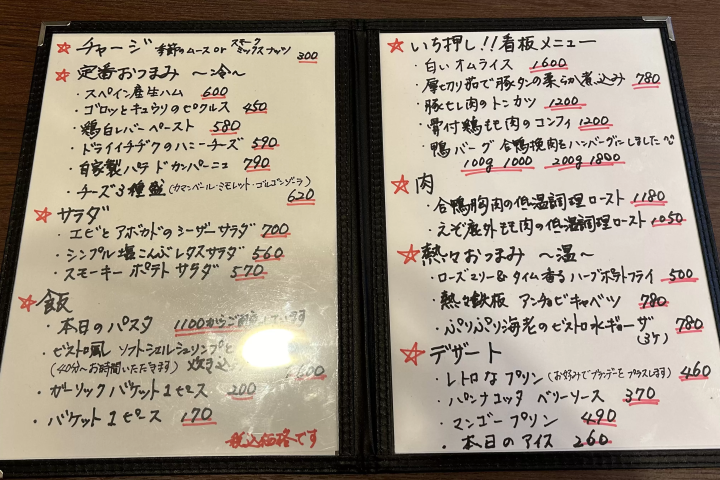 ☆ チャージ 季節のムース or スモークミックスナッツ 300
☆ 定番おつまみ ～冷～
・スペイン産生ハム 600
・ゴロッとキュウリのピクルス 450
・鶏白レバーペースト 580
・ドライイチヂクのハニーチーズ 590
・自家製パテドカンパーニュ 790
・チーズ3種盛(カマンベール・ミモレット・ゴルゴンゾーラ) 620
☆ サラダ
・エビとアボカドのシーザーサラダ 700
・シンプル塩こんぶレタスサラダ 560
・スモーキーポテトサラダ 570
☆ 飯
・本日のパスタ 1100から
・ビストロ風 ソフトシェルシュリンプと
(40分～お時間いただきます) 炊き込
・ガーリックバケット1ピース 200
・バケット1ピース 170
税込価格です
☆ いち押し!!看板メニュー
・白いオムライス 1600
・厚切り茹で豚タンの柔らか煮込み 780
・豚ヒレ肉のトンカツ 1200
・骨付鶏もも肉のコンフィ 1200
・鴨バーグ 合鴨挽肉をハンバーグにしました
100g 1000 200g 1800
☆ 肉
・合鴨胸肉の低温調理ロースト 1180
・えぞ鹿外もも肉の低温調理ロースト 1050
☆ 熱々おつまみ ～温～
・ローズマリー&タイム香るハーブポテトフライ 500
・熱々鉄板 アンチョビキャベツ 780
・ぷりぷり海老のビストロ水ギョーザ 780
(3ケ)
☆ デザート
・レトロなプリン(お好みでブランデーをプラスします) 460
・パンナコッタ ベリーソース 370
・マンゴープリン 490
・本日のアイス 260